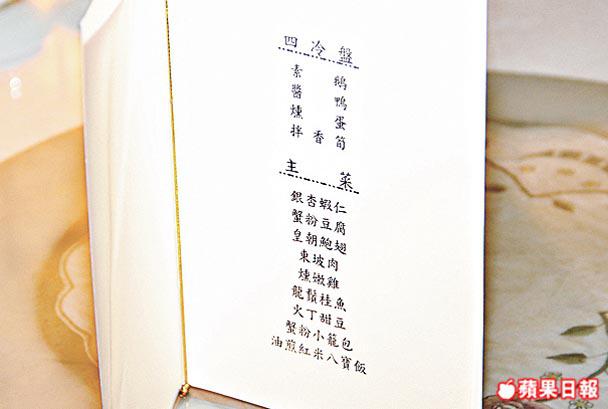 四冷盤
素鵝
醬鴨
燻蛋
拌香筍
主菜
銀杏蝦仁
蟹粉豆腐
皇朝鮑翅
東坡肉
燻嫩雞
龍鬚桂魚
火丁甜豆
蟹粉小籠包
油煎紅米八寶飯
蘋果日報